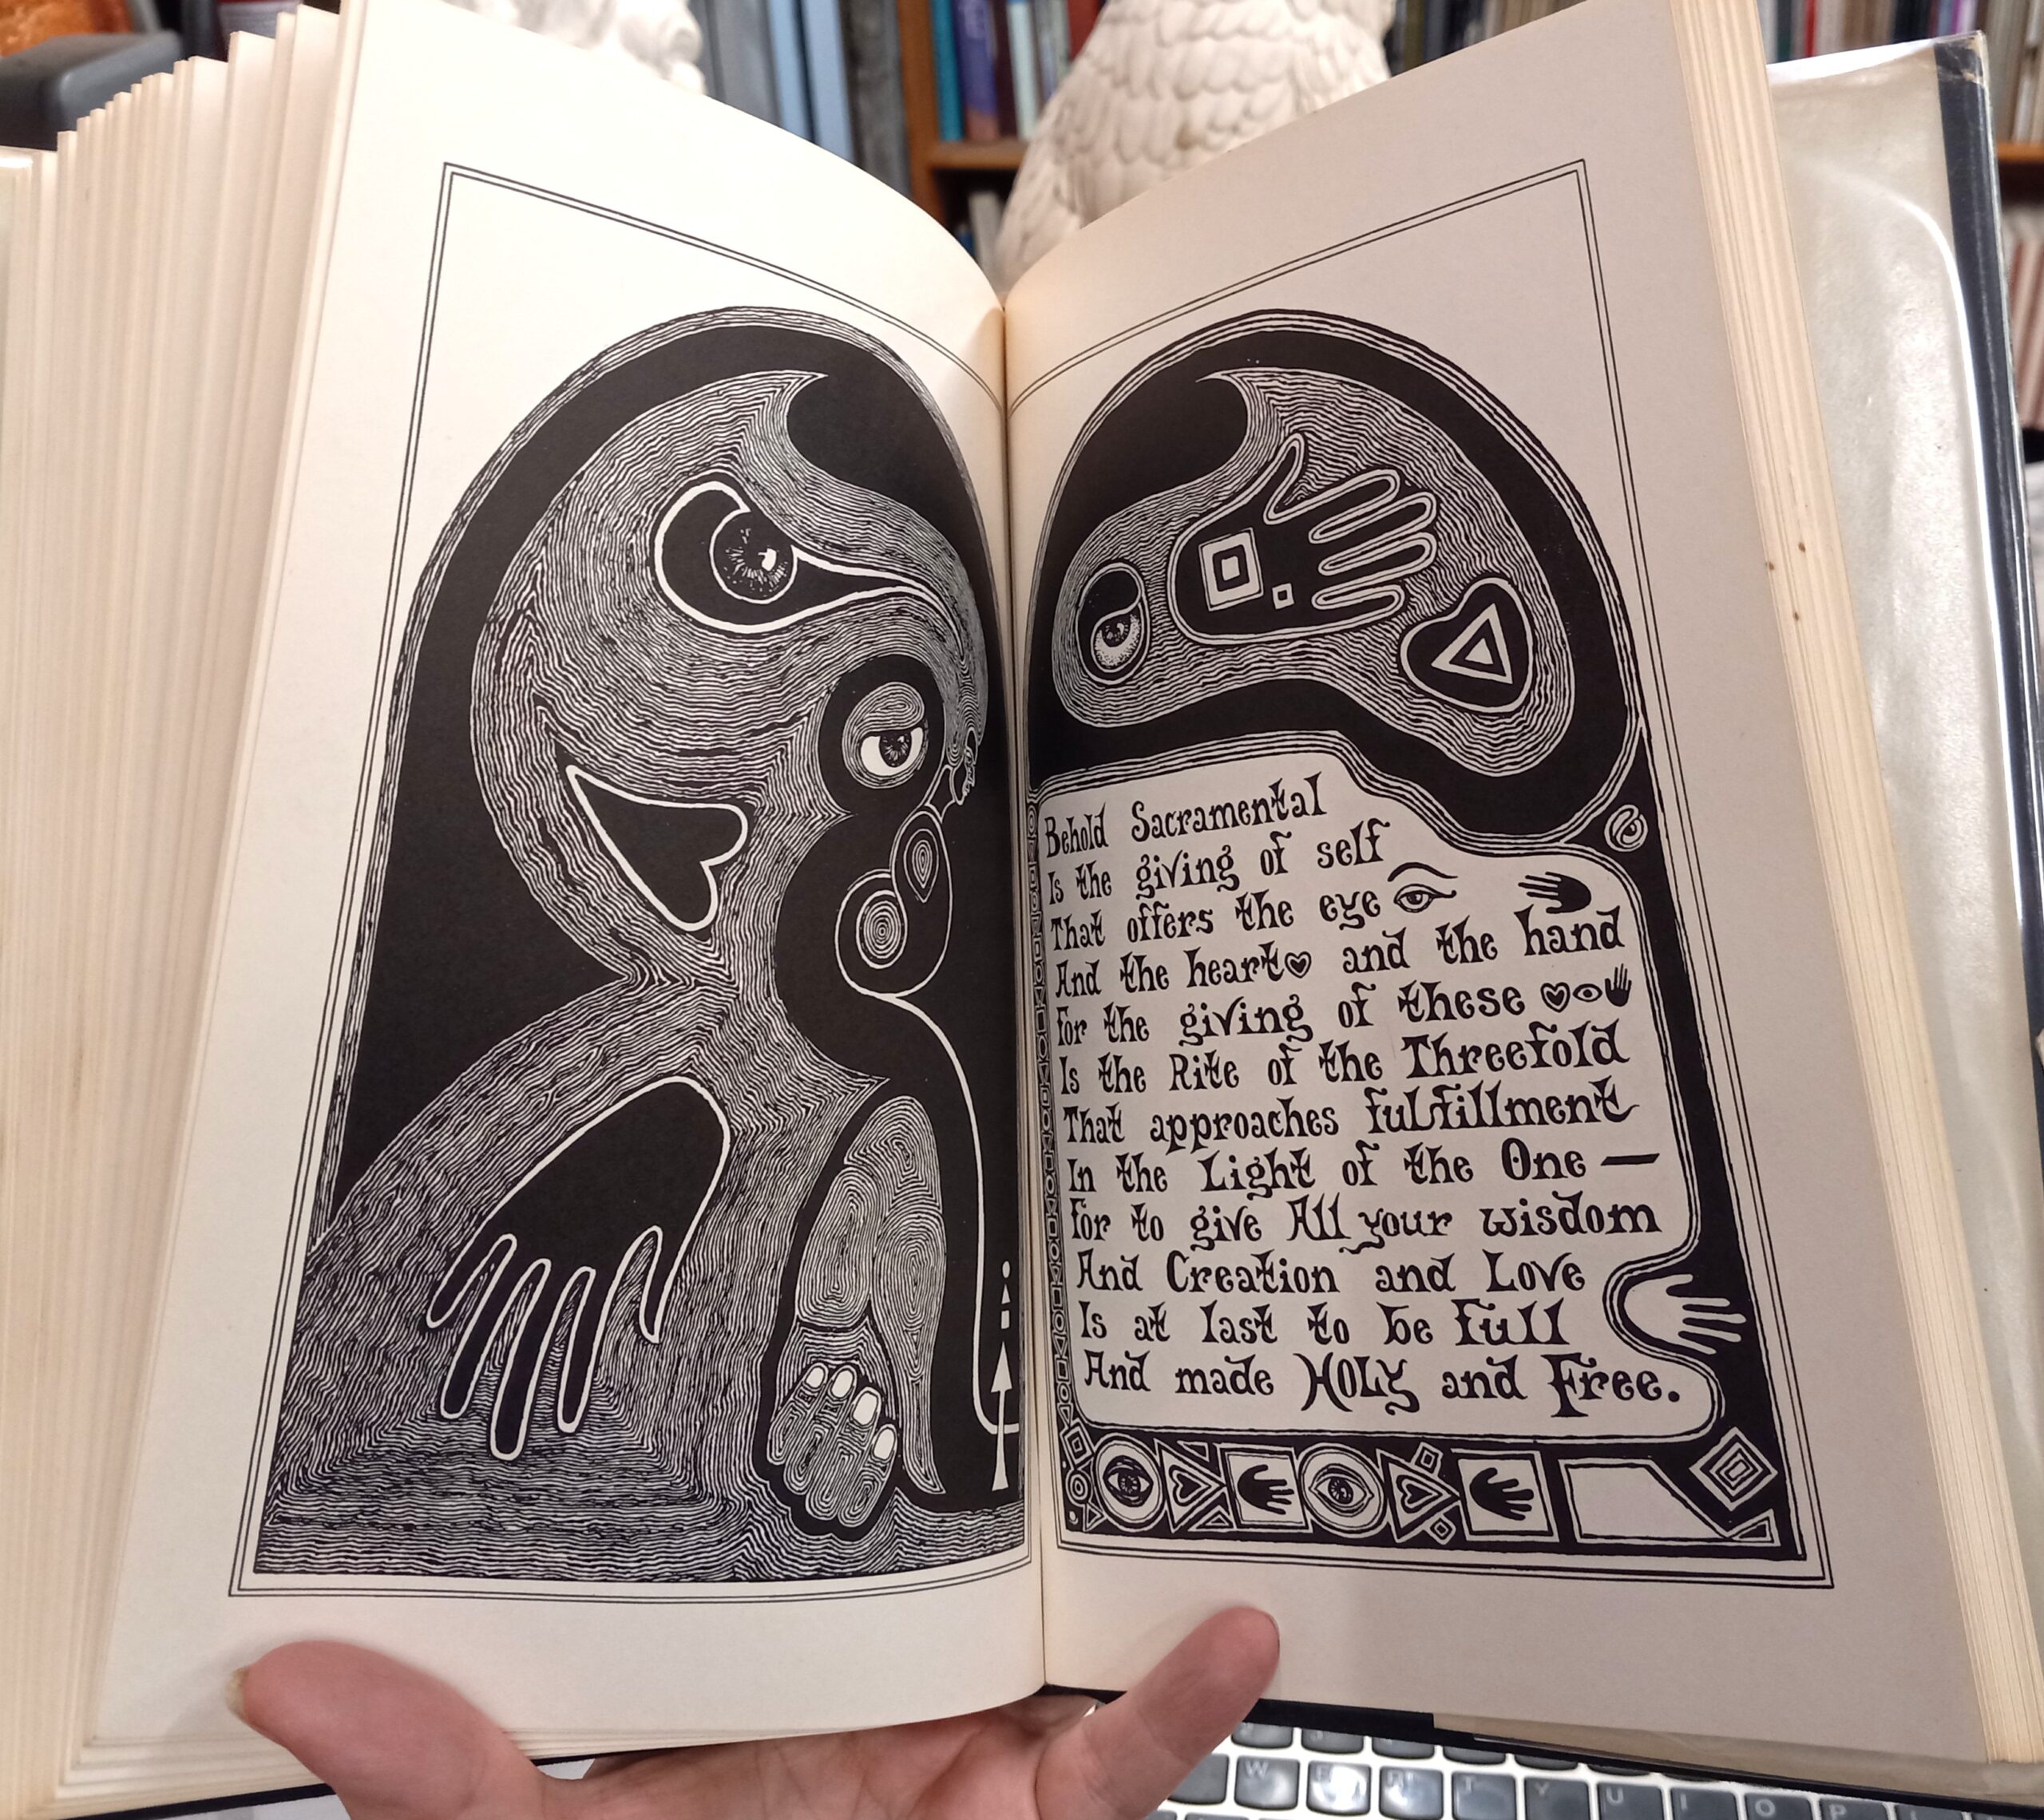 Behold Sacramental
Is the giving of self
That offers the eye
And the heart and the hand
For the giving of these
Is the Rite of the Threefold
That approaches fulfillment
In the Light of the One —
For to give All your wisdom
And Creation and Love
Is at last to be full
And made HOLY and Free.
W E R T Y U I O P